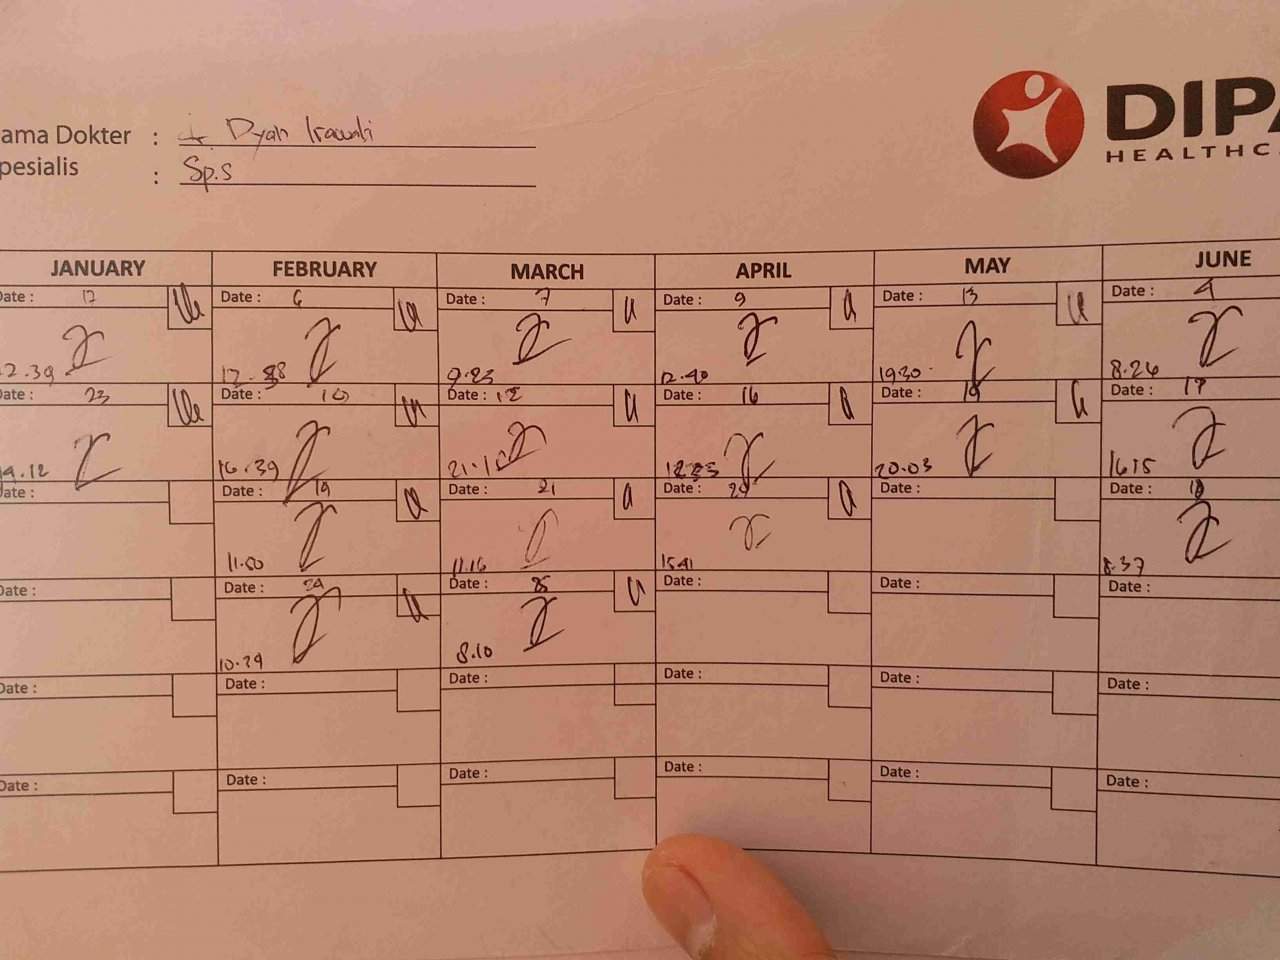 ama Dokter : dr. Dyah Irawati
pesialis : Sp.S
DIPA
HEALTHCA
JANUARY FEBRUARY MARCH APRIL MAY JUNE
Date : 17 Date : 6 Date : 7 Date : 9 Date : 13 Date : 4
2.39 12.38 9.23 12.40 19.30 8.26
Date : 23 Date : 10 Date : 12 Date : 16 Date : 19 Date : 17
19.12 16.39 21.15 20.03 16.15
Date : Date : 19 Date : 21 Date : 29 Date : Date : 18
11.50 11.16 15.41 8.37
Date : Date : 24 Date : 25 Date : Date : Date :
10.29 8.10
Date : Date : Date : Date : Date : Date :
Date : Date : Date : Date : Date : Date :